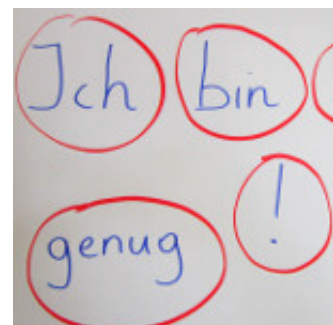 Ich bin
genug !